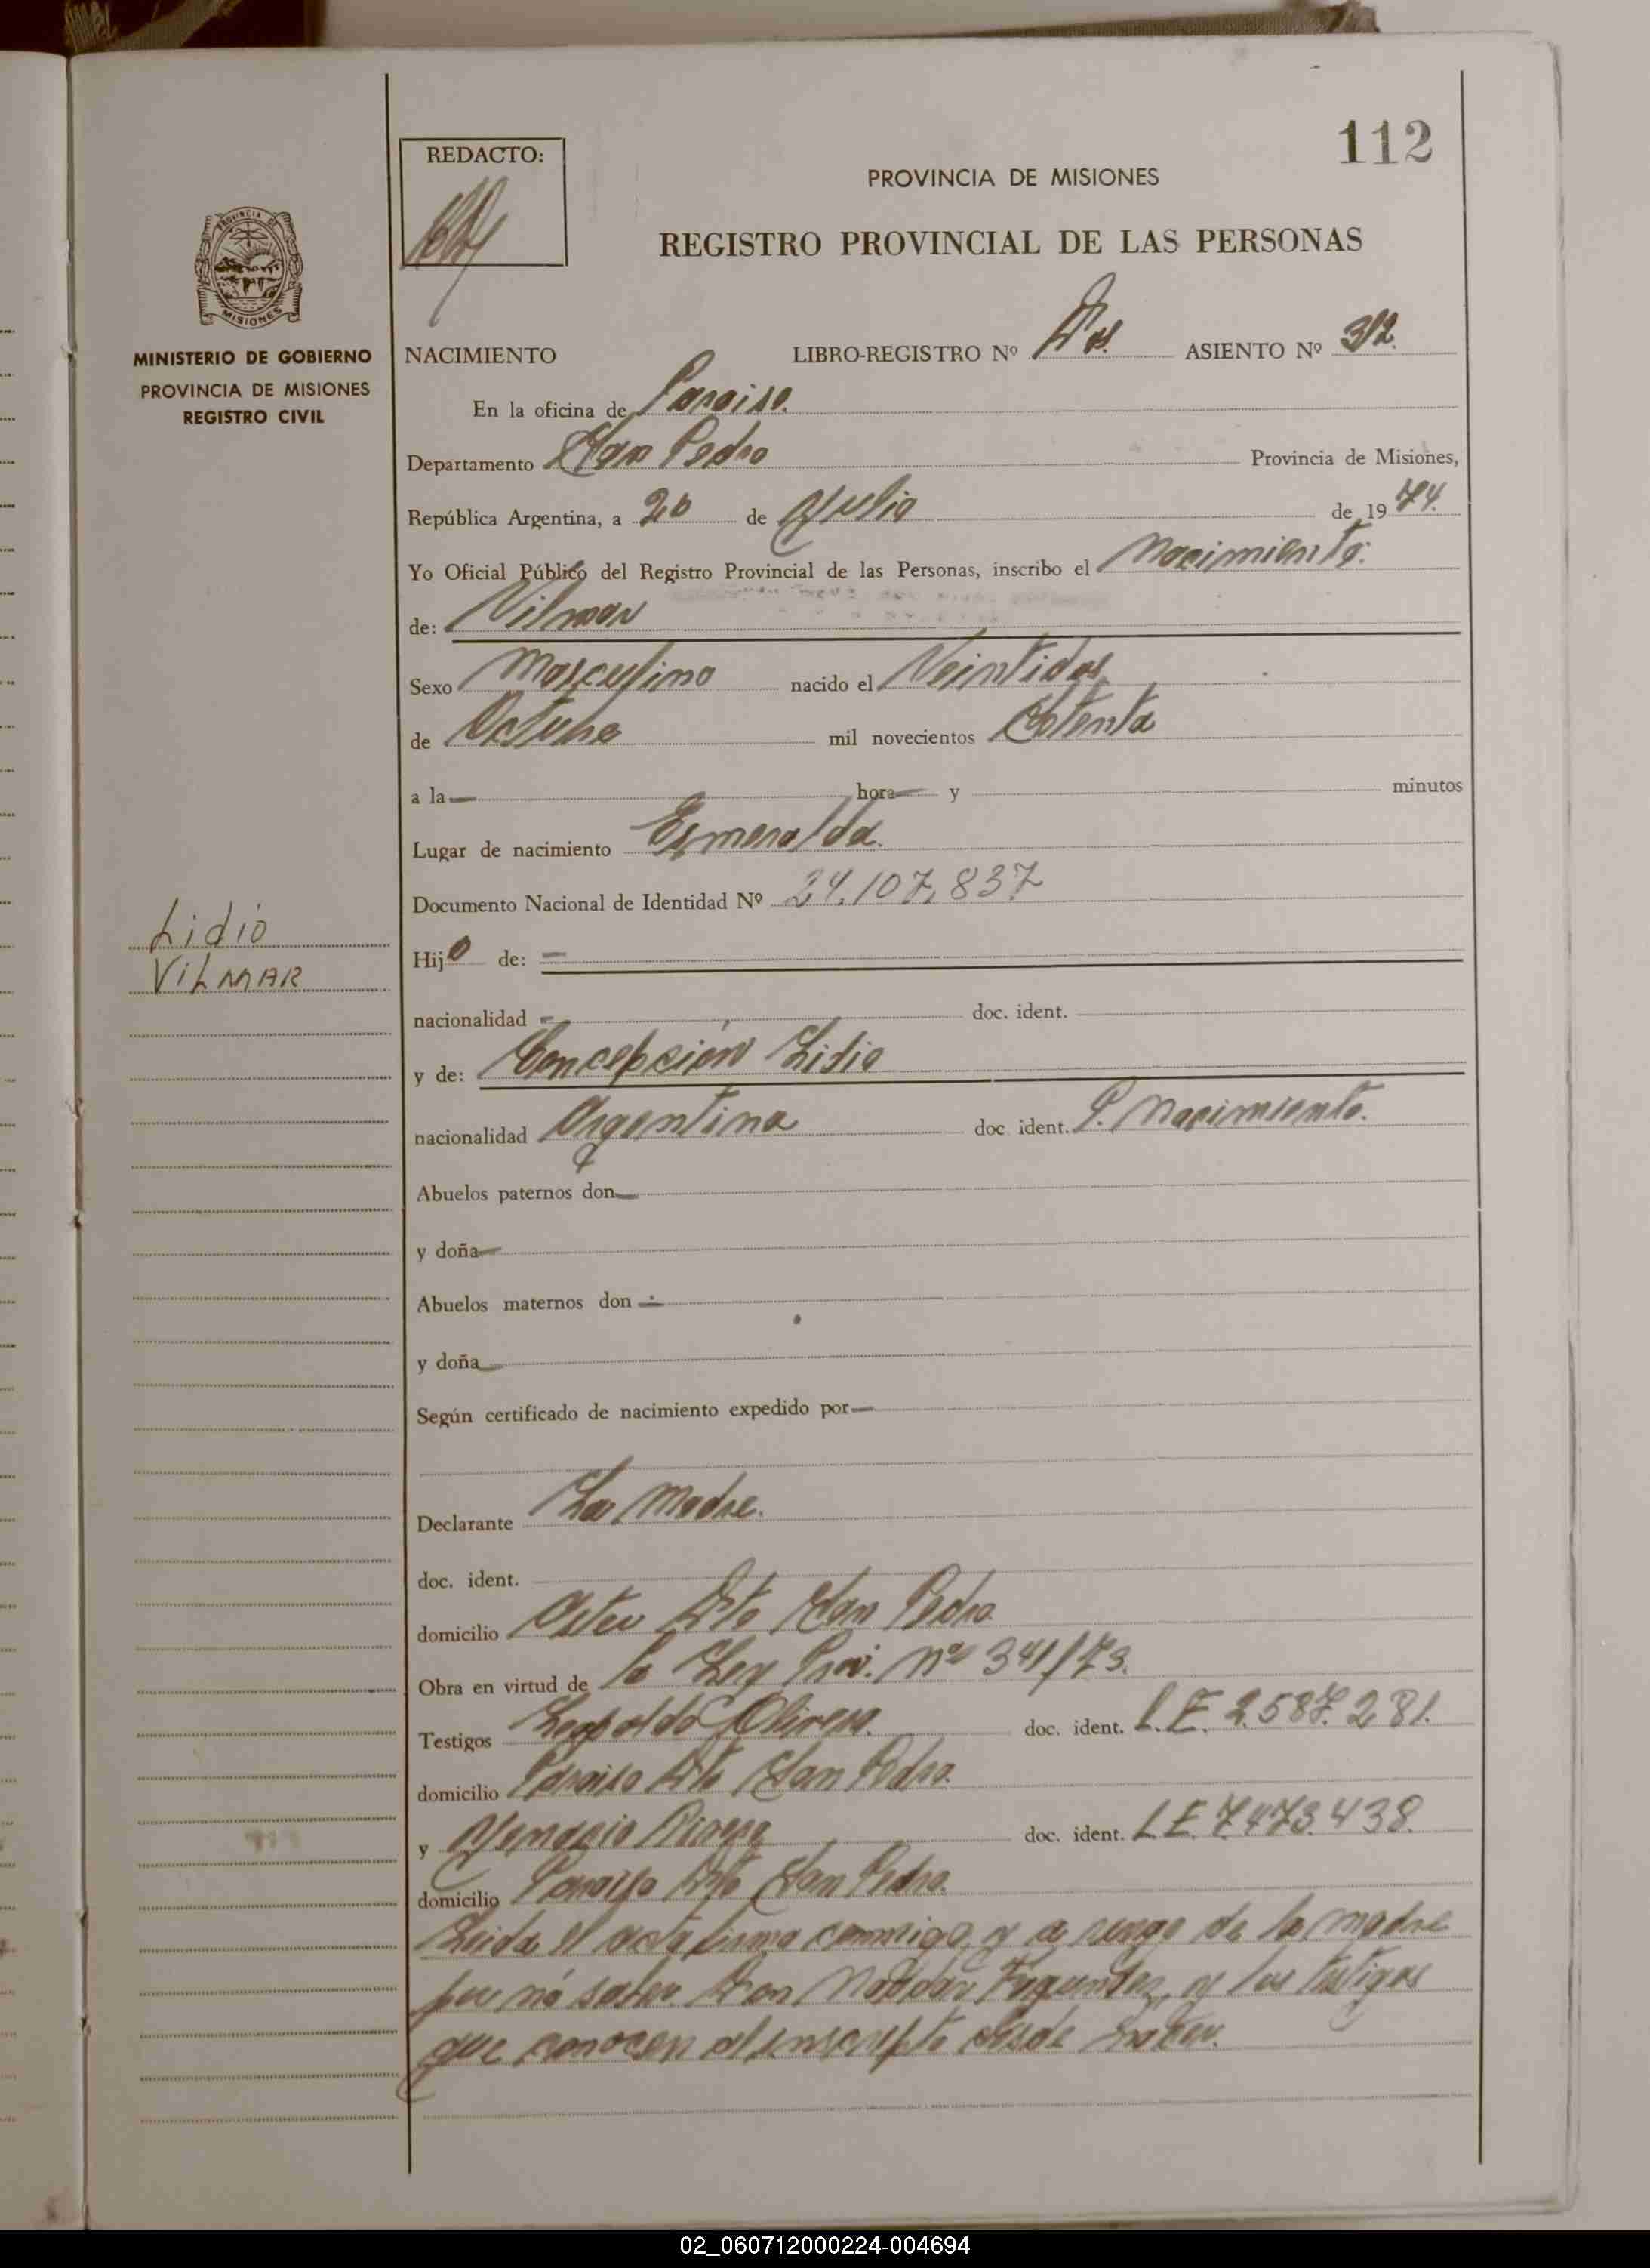 112
REDACTO:
PROVINCIA DE MISIONES
REGISTRO PROVINCIAL DE LAS PERSONAS
PROVINCIA DE
MISIONES
MINISTERIO DE GOBIERNO
PROVINCIA DE MISIONES
REGISTRO CIVIL
NACIMIENTO LIBRO-REGISTRO Nº Dos. ASIENTO Nº 312.
En la oficina de Paraiso.
Departamento San Pedro Provincia de Misiones,
República Argentina, a 20 de Julio de 1974.
Yo Oficial Público del Registro Provincial de las Personas, inscribo el Nacimiento:
de: Vilmar
Sexo Masculino nacido el Veintidos
de Octubre mil novecientos Setenta
a la — hora — y minutos
Lugar de nacimiento Esmeralda.
Documento Nacional de Identidad Nº 24.107,837
Lidio
VILMAR
Hijo de: —
nacionalidad — doc. ident.
y de: Concepción Lidio
nacionalidad Argentina doc. ident. P. Nacimiento.
Abuelos paternos don —
y doña —
Abuelos maternos don —
y doña —
Según certificado de nacimiento expedido por —
Declarante La Madre.
doc. ident.
domicilio Dto San Pedro
Obra en virtud de la Ley Prov. nº 341/73.
Testigos Leopoldo Olivera. doc. ident. L.E. 2.587.281.
domicilio Paraiso Dto San Pedro.
y Ignacio doc. ident. L.E. 7.473.438.
domicilio Paraiso Dto San Pedro.
Leida el acta firma conmigo, y a ruego de la madre
por nó saber Don Fagundez, y los testigos
que conocen al inscripto desde nacer.
02_060712000224-004694